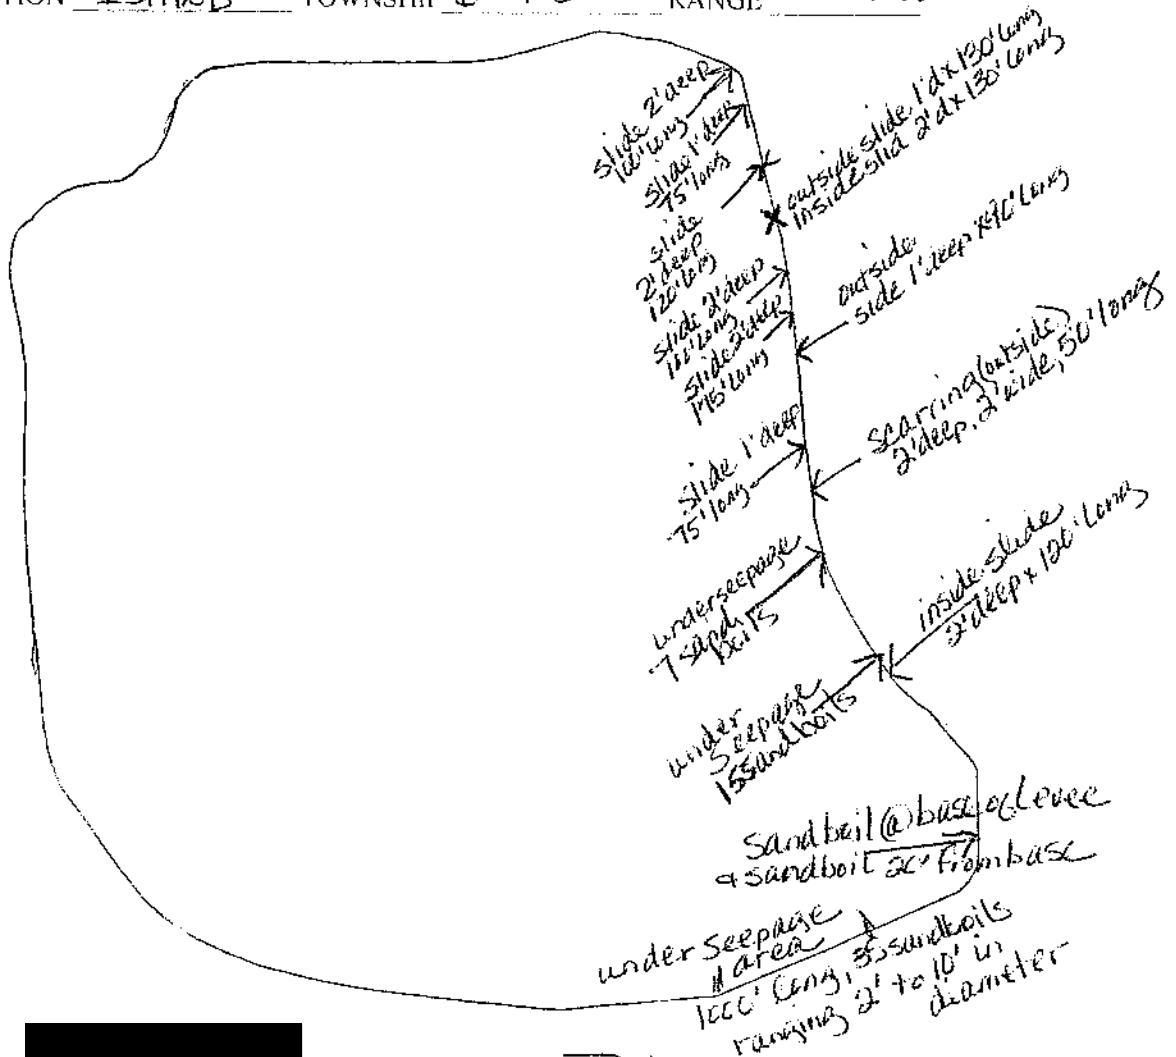 TOWNSHIP
RANGE
slide 2' deep
100' long
slide 1' deep
75' long
slide
2' deep
120' long
outside slide 1'd x 130' long
inside slid 2'd x 130' long
slide 2' deep
100' long
slide 2' deep
175' long
outside
side 1' deep x 90' long
slide 1' deep
75' long
scarring (outside)
2' deep, 2' wide, 50' long
underseepage
7 sand
boils
inside slide
2' deep x 120' long
under
seepage
15 sandboils
Sandboil @ base of levee
& sandboil 20' from base
under seepage
area
1000' long, 35 sandboils
ranging 2' to 10' in
diameter